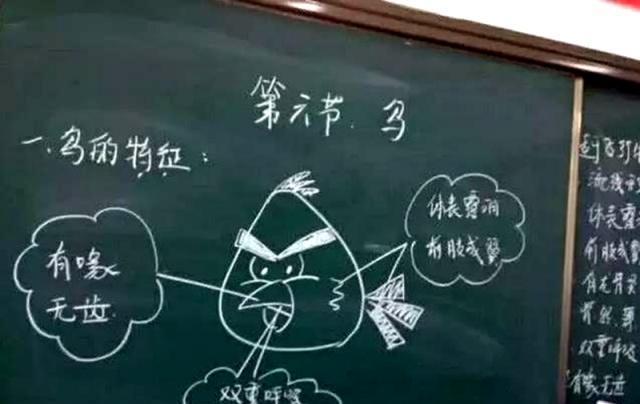 第六节. 鸟
一.鸟的特征:
体表覆羽
前肢成翼
有喙
无齿.
双重呼吸
流线型
体表覆
前肢成翼
双重呼吸
有喙无齿